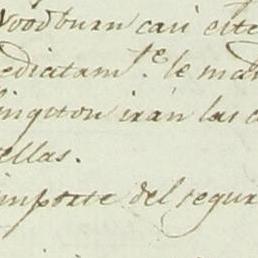 Woodburn casi este
edictam.te le man
lington iran las c
ellas.
importe del segur